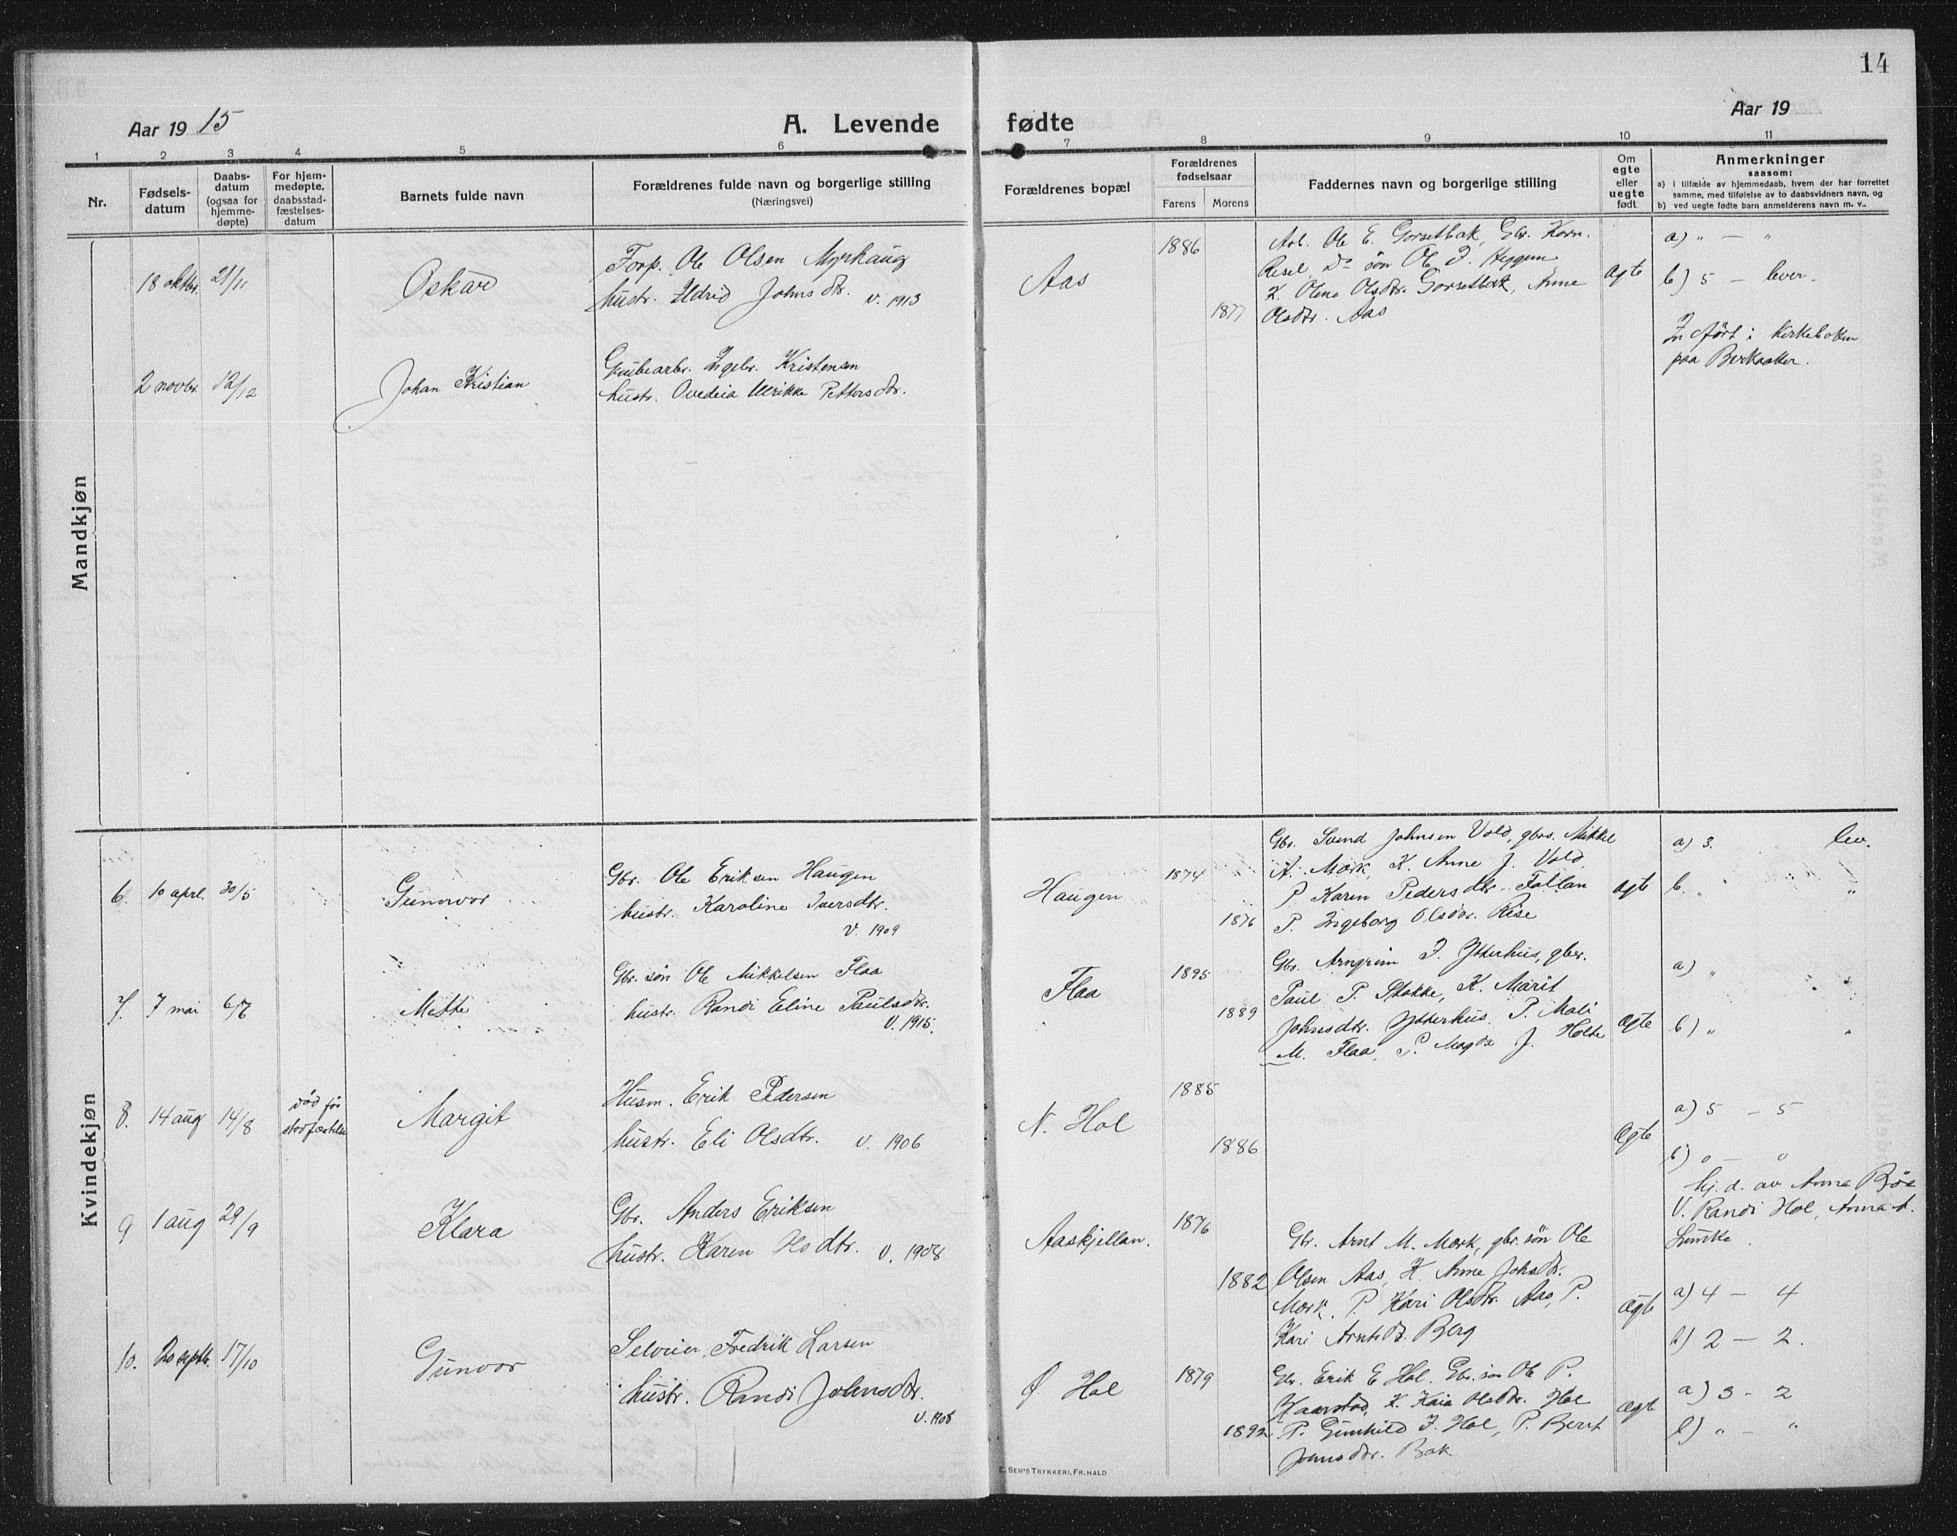 14
Aar 19 15
A. Levende fødte
Aar 19
1 2 3 4 5 6 7 8 9 10 11
Nr.
Fødsels-
datum
Daabs-
datum
(ogsaa for
hjemme-
døpte)
For hjem-
medøpte,
daabsstad-
fæstelses-
datum
Barnets fulde navn
Forældrenes fulde navn og borgerlige stilling
(Næringsvei)
Forældrenes bopæl
Forældrenes
fødselsaar
Farens Morens
Faddernes navn og borgerlige stilling
Om
egte
eller
uegte
født
Anmerkninger
saasom:
a) i tilfælde av hjemmedaab, hvem der har forrettet
samme, med tilføielse av to daabsvidners navn, og
b) ved uegte fødte barn anmelderens navn m. v..
Mandkjøn
18 oktbr. 21/11
Oskar
Forp. Ole Olsen Myrhaug
hustr. Ildrid Johnsdtr. v. 1913
Aas
1886
1877
Arb. Ole E. Gorsetbak, Gbr. Korn.
Risel, Do søn Ole J. Heggem
K. Olena Olsdtr. Gorsetbak, Anne
Olsdtr. Aas
ægte
a) " — "
b) 5 — lever.
2 novbr. 12/12
Johan Kristian
Grubearbr. Ingebr. Kristensen
hustr. Ovedia Ulrikke Pettersdtr.
Indført i kirkeboken
paa Berkaaker.
Kvindekjøn
6. 10 apr. 30/5
Gunvor
Gbr. Ole Eriksen Haugen
hustr. Karoline Iversdtr.
v. 1909
Haugen
1874
1876
Gbr. Svend Johnsen Vold, gbrs. Mikkel
A. Mork, K. Anne J. Vold
P. Karen Pedersdtr. Fallan
P. Ingeborg Olsdtr. Rise
ægte
a) 3. lev.
b. " "
7. 7 mai 6/7
Mette
Gbr. søn Ole Mikkelsen Flaa
hustr. Randi Eline Paulsdtr.
v. 1915.
Flaa
1895
1889
Gbr. Arngrim J. Ytterhus, gbr.
Paul P. Stokke, K. Marit
Johnsdtr. Ytterhus. P. Mali
M. Flaa, P. Magda J. Holte
ægte
a) "
b) " "
8. 14 aug 14/8
død før
stadfæstelse
Margit
Husm. Erik Pedersen
hustr. Eli Olsdtr. v. 1906
N. Hol
1885
1886
Ægte
a) 5 — 5
b) 0 — 0
hj. d. av Anna Bøe
V. Randi Hol, Anna A.
9 1 aug 29/9
Klara
Gbr. Anders Eriksen
hustr. Karen Olsdtr. v. 1908
Aaskjellan.
1876
1882
Gbr. Arnt M. Mork, gbr. søn Ole
Olsen Aas, K. Anne Johsdtr.
Mork, P. Kari Olsdtr. Aas, P.
Kari Arntsdtr. Berg
Ægte
a) 4 — 4
b) 2 — 2.
10. 20 septbr. 17/10
Gunvor
Selveier, Fredrik Larsen
hustr. Randi Johnsdtr.
v. 1908
Ø. Hol
1879
1892
Gbr. Erik E Hol. Gbr. søn Ole P.
Kaarstad, K. Kaia Olsdtr. Hol
P. Gunhild J. Hol, P. Berit
Johnsdtr. Bak
Ægte
a) 3 - 2
b) " — "
E. SEM'S TRYKKERI, FR.HALD